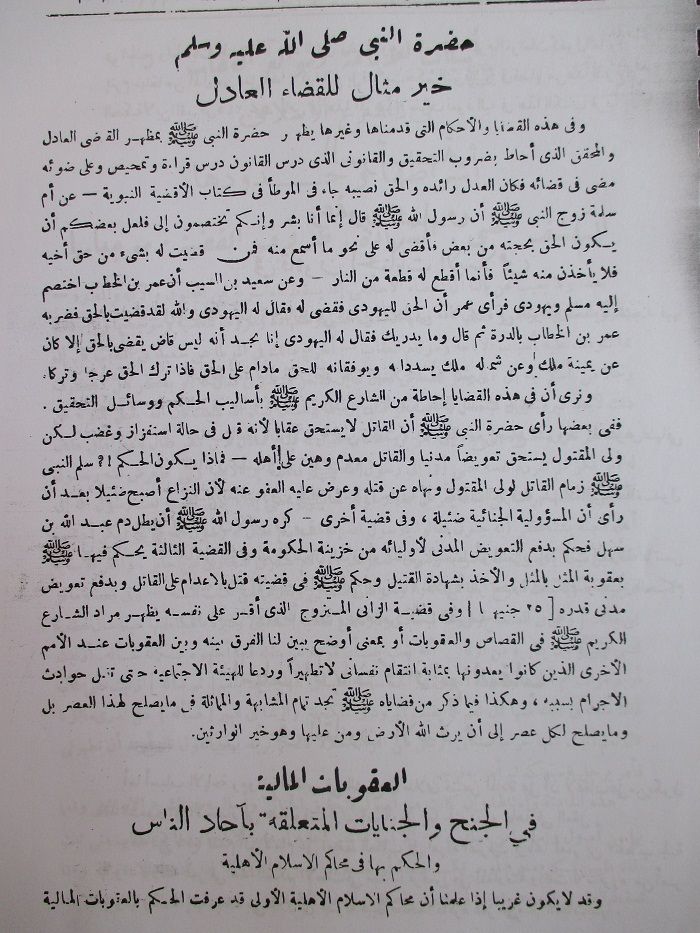 حضرة النبى صلى الله عليه وسلم
خير مثال للقضاء العادل
وفى هذه القضايا والأحكام التى قدمناها وغيرها يظهر حضرة النبى ﷺ بمظهر القاضى العادل
والمحقق الذى أحاط بضروب التحقيق والقانونى الذى درس القانون درس قراءة وتمحيص وعلى ضوئه
مضى فى قضائه فكان العدل رائده والحق نصيبه جاء فى الموطأ فى كتاب الأقضية النبوية — عن أم
سلمة زوج النبى ﷺ أن رسول الله ﷺ قال إنما أنا بشر وإنكم تختصمون إلى فلعل بعضكم أن
يكون الحق بحجته من بعض فأقضى له على نحو ما أسمع منه فمن قضيت له بشىء من حق أخيه
فلا يأخذن منه شيئاً فأنما أقطع له قطعة من النار — وعن سعيد بن المسيب أن عمر بن الخطاب اختصم
إليه مسلم ويهودى فرأى عمر أن الحق لليهودى فقضى له فقال له اليهودى والله لقد قضيت بالحق فضربه
عمر بن الخطاب بالدرة ثم قال وما يدريك فقال له اليهودى إنا نجد أنه ليس قاض يقضى بالحق إلا كان
عن يمينة ملك وعن شماله ملك يسددانه ويوفقانه للحق مادام على الحق فاذا ترك الحق عرجا وتركاه
ونرى أن فى هذه القضايا إحاطة من الشارع الكريم ﷺ بأساليب الحكم ووسائل التحقيق .
ففى بعضها رأى حضرة النبى ﷺ أن القاتل لا يستحق عقابا لأنه قتل فى حالة استفزاز وغضب لكن
ولى المقتول يستحق تعويضاً مدنيا والقاتل معدم وهين على أهله — فماذا يكون الحكم ؟! سلم النبى
ﷺ زمام القاتل لولى المقتول ونهاه عن قتله وعرض عليه العفو عنه لأن النزاع أصبح ضئيلا بعد أن
رأى أن المسؤولية الجنائية ضئيلة ، وفى قضية أخرى — كره رسول الله ﷺ أن يطل دم عبد الله بن
سهل فحكم بدفع التعويض المدنى لأوليائه من خزينة الحكومة وفى القضية الثالثة يحكم فيها ﷺ
بعقوبة المثل بالمثل والأخذ بشهادة القتيل وحكم ﷺ فى قضيته قتل بالاعدام على القاتل وبدفع تعويض
مدنى قدره [ ٢٥ جنيها ] وفى قضية الزانى المتزوج الذى أقر على نفسه يظهر مراد الشارع
الكريم ﷺ فى القصاص والعقوبات أو بمعنى أوضح يبين لنا الفرق بينه وبين العقوبات عند الأمم
الأخرى الذين كانوا يعدونها بمثابة انتقام نفسانى لا تطهيراً وردعا للهيئة الاجتماعية حتى تقل حوادث
الاجرام بسببه ، وهكذا فيما ذكر من قضاياه ﷺ تجد تمام المشابهة والمماثلة فى مايصلح لهذا العصر بل
ومايصلح لكل عصر إلى أن يرث الله الأرض ومن عليها وهو خير الوارثين.
العقوبات المالية
فى الجنح والجنايات المتعلقة بآحاد الناس
والحكم بها فى محاكم الاسلام الأهلية
وقد لا يكون غريبا إذا علمنا أن محاكم الاسلام الأهلية الأولى قد عرفت الحكم بالعقوبات المالية